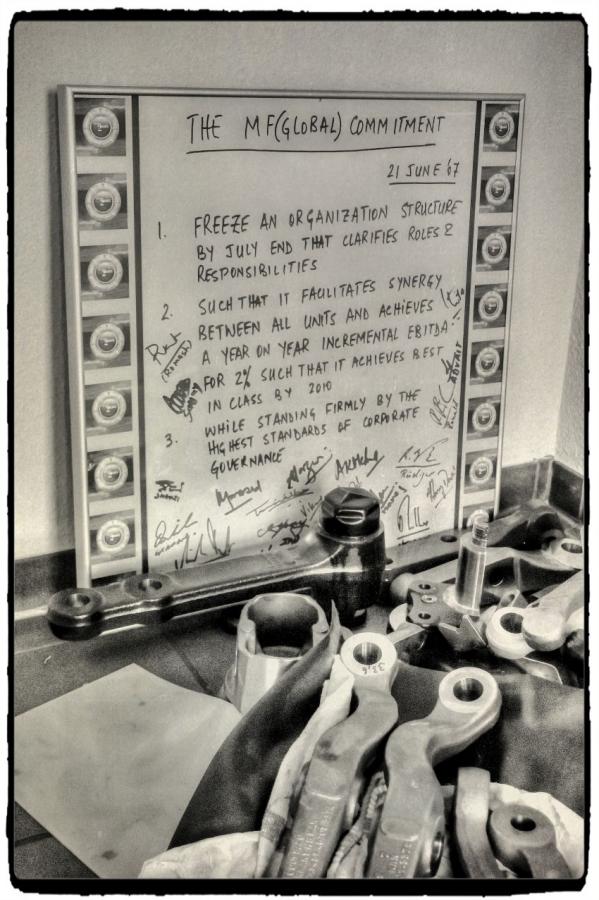 THE MF(GLOBAL) COMMITMENT
21 JUNE '07
1. FREEZE AN ORGANIZATION STRUCTURE
BY JULY END THAT CLARIFIES ROLES &
RESPONSIBILITIES
2. SUCH THAT IT FACILITATES SYNERGY
BETWEEN ALL UNITS AND ACHIEVES
A YEAR ON YEAR INCREMENTAL EBITDA
FOR 2% SUCH THAT IT ACHIEVES BEST
IN CLASS BY 2010
3. WHILE STANDING FIRMLY BY THE
HIGHEST STANDARDS OF CORPORATE
GOVERNANCE
33,6